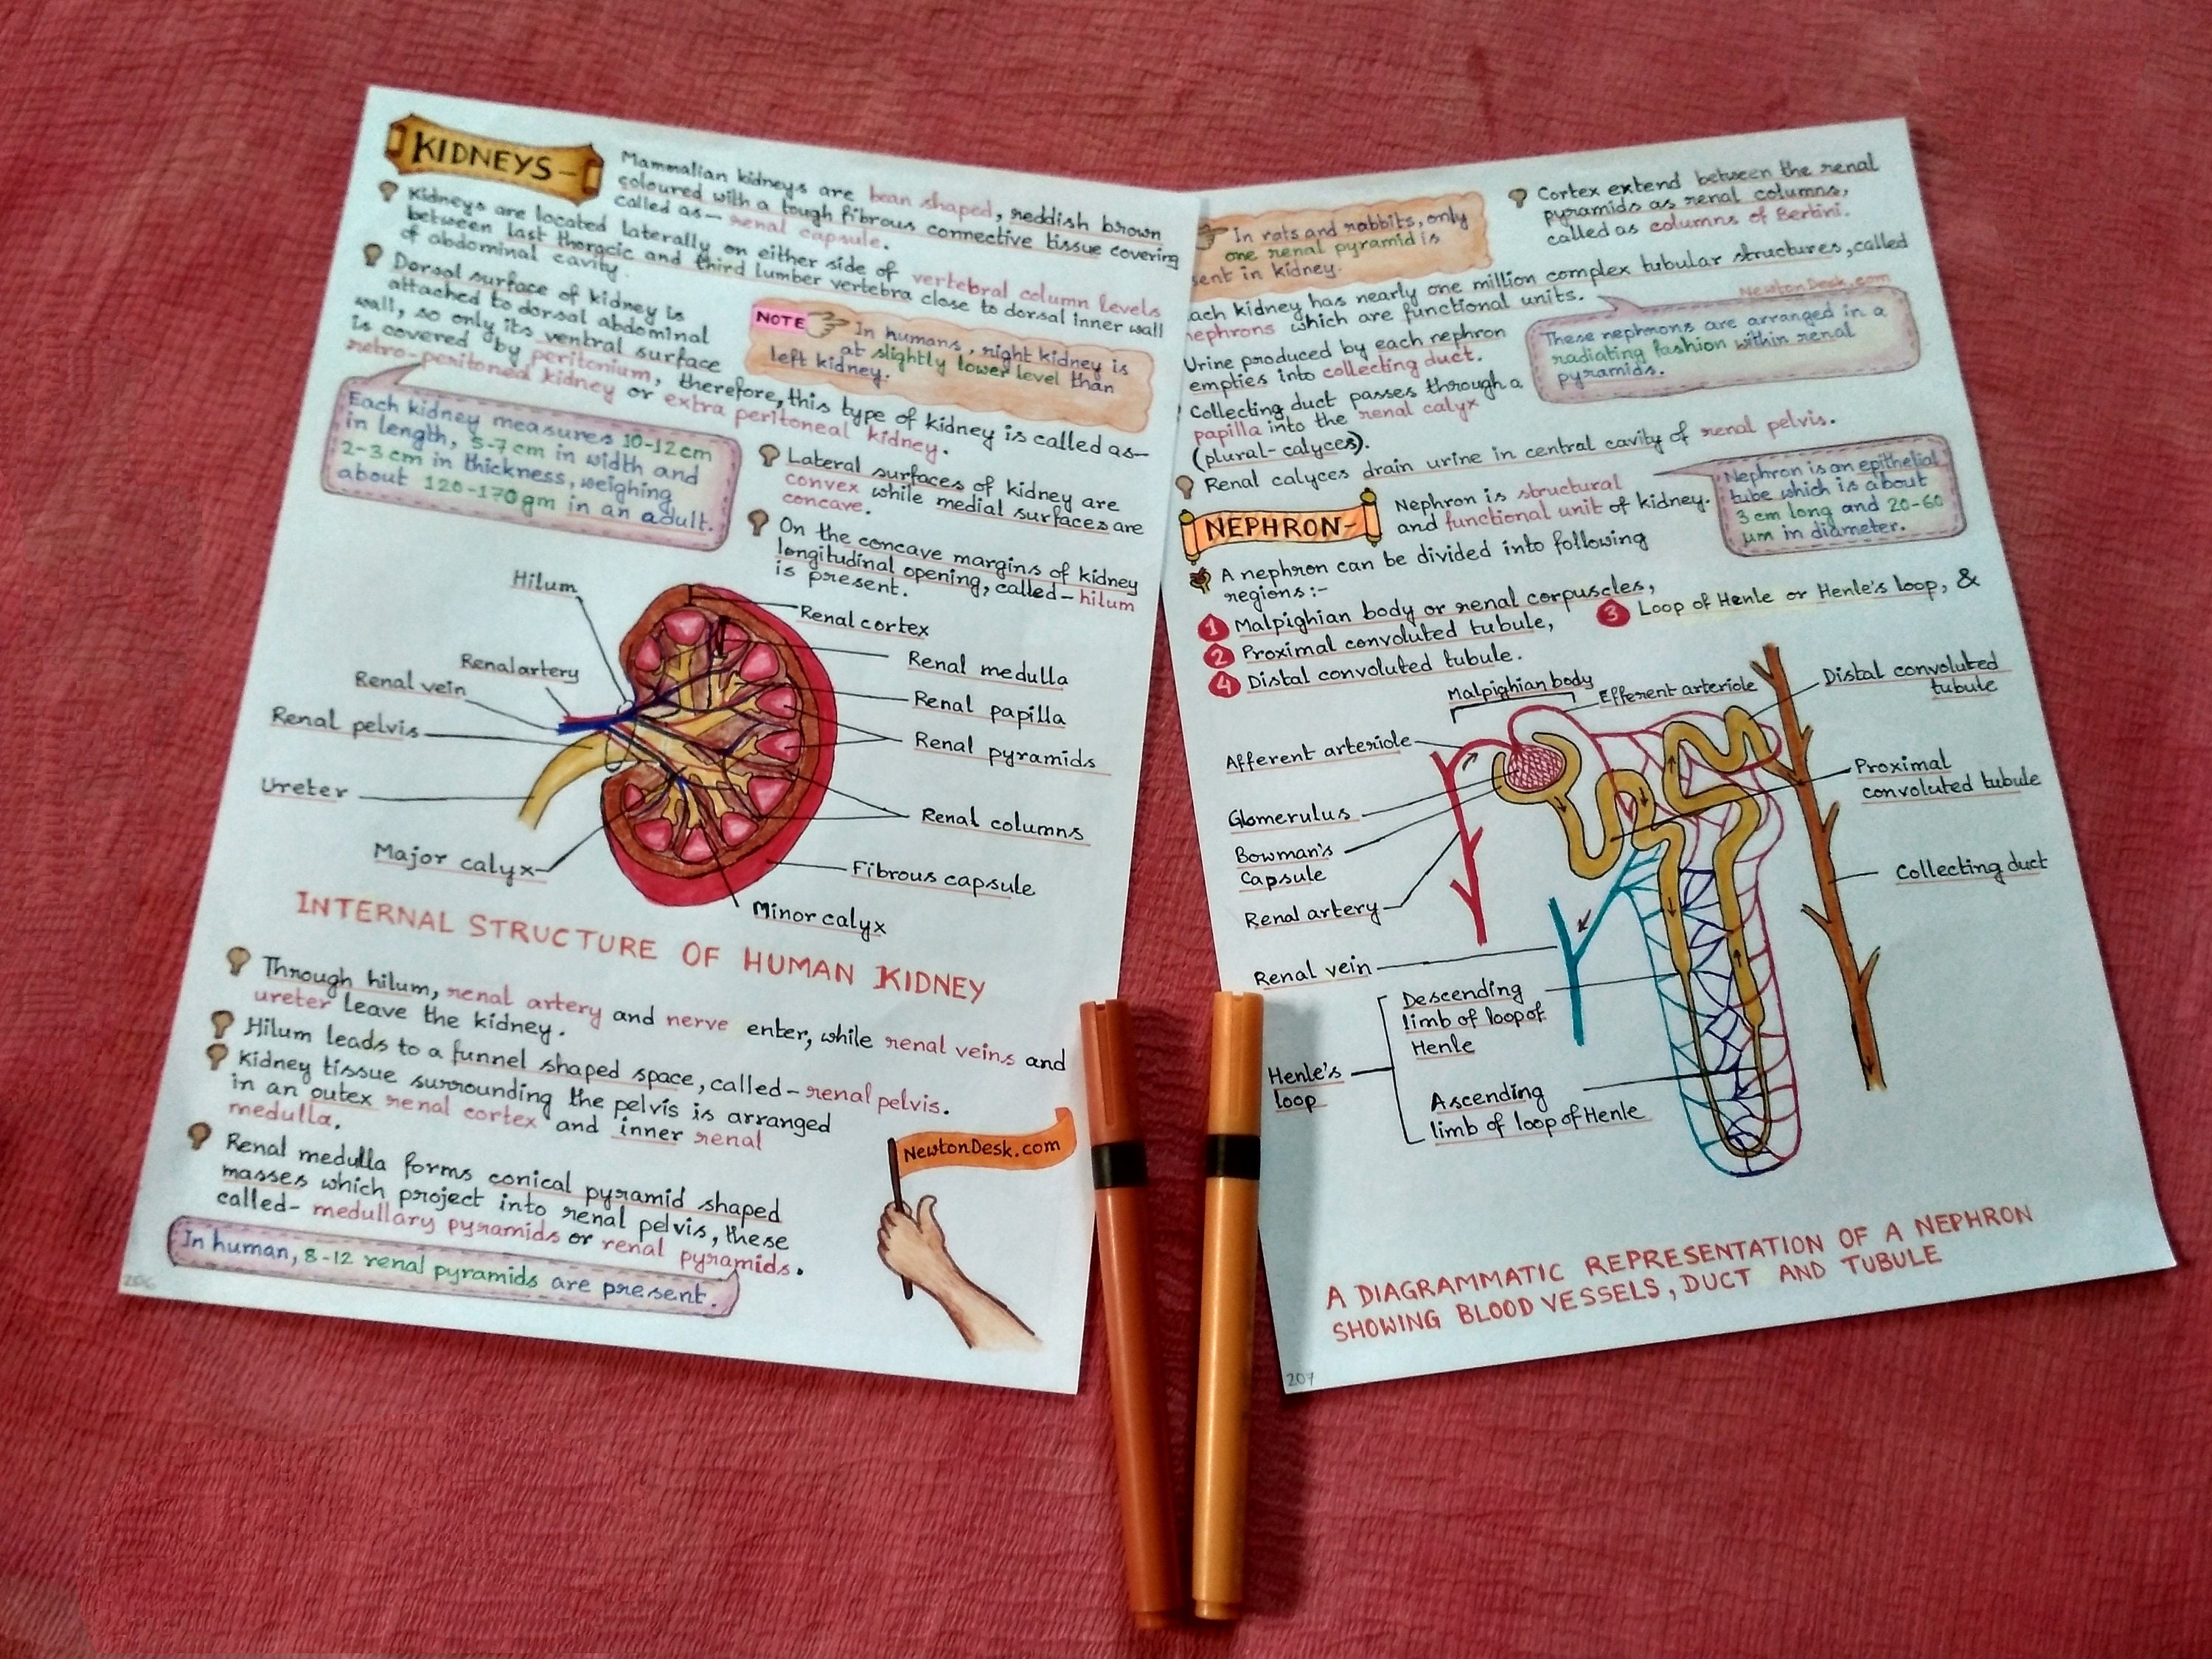 KIDNEYS-
Mammalian kidneys are bean shaped, reddish brown
coloured with a tough fibrous connective tissue covering
called as- renal capsule.
Kidneys are located laterally on either side of vertebral column levels
between last thoracic and third lumber vertebra close to dorsal inner wall
of abdominal cavity.
Dorsal surface of kidney is
attached to dorsal abdominal
wall, so only its ventral surface
is covered by peritonium, therefore, this type of kidney is called as-
retro-peritoneal kidney or extra peritoneal kidney.
NOTE
In humans, right kidney is
at slightly lower level than
left kidney.
Each kidney measures 10-12cm
in length, 5-7cm in width and
2-3cm in thickness, weighing
about 120-170gm in an adult.
Lateral surfaces of kidney are
convex while medial surfaces are
concave.
On the concave margins of kidney
longitudinal opening, called- hilum
is present.
Hilum
Renal artery
Renal vein
Renal pelvis
Ureter
Major calyx
Renal cortex
Renal medulla
Renal papilla
Renal pyramids
Renal columns
Fibrous capsule
Minor calyx
INTERNAL STRUCTURE OF HUMAN KIDNEY
Through hilum, renal artery and nerve enter, while renal veins and
ureter leave the kidney.
Hilum leads to a funnel shaped space, called- renal pelvis.
Kidney tissue surrounding the pelvis is arranged
in an outex renal cortex and inner renal
medulla.
Renal medulla forms conical pyramid shaped
masses which project into renal pelvis, these
called- medullary pyramids or renal pyramids.
In human, 8-12 renal pyramids are present.
NewtonDesk.com
206
In rats and rabbits, only
one renal pyramid is
sent in kidney.
Cortex extend between the renal
pyramids as renal columns,
called as columns of Bertini.
ach kidney has nearly one million complex tubular structures, called
nephrons which are functional units.
NewtonDesk.com
These nephrons are arranged in a
radiating fashion within renal
pyramids.
Urine produced by each nephron
empties into collecting duct.
Collecting duct passes through a
papilla into the renal calyx
(plural-calyces).
Renal calyces drain urine in central cavity of renal pelvis.
NEPHRON-
Nephron is structural
and functional unit of kidney.
Nephron is an epithelial
tube which is about
3 cm long and 20-60
μm in diameter.
A nephron can be divided into following
regions:-
1 Malpighian body or renal corpuscles,
2 Proximal convoluted tubule,
3 Loop of Henle or Henle's loop, &
4 Distal convoluted tubule.
Malpighian body
Efferent arteriole
Distal convoluted
tubule
Afferent arteriole
Proximal
convoluted tubule
Glomerulus
Bowman's
Capsule
Renal artery
Collecting duct
Renal vein
Descending
limb of loop of
Henle
Henle's
loop
Ascending
limb of loop of Henle
A DIAGRAMMATIC REPRESENTATION OF A NEPHRON
SHOWING BLOOD VESSELS, DUCT AND TUBULE
207